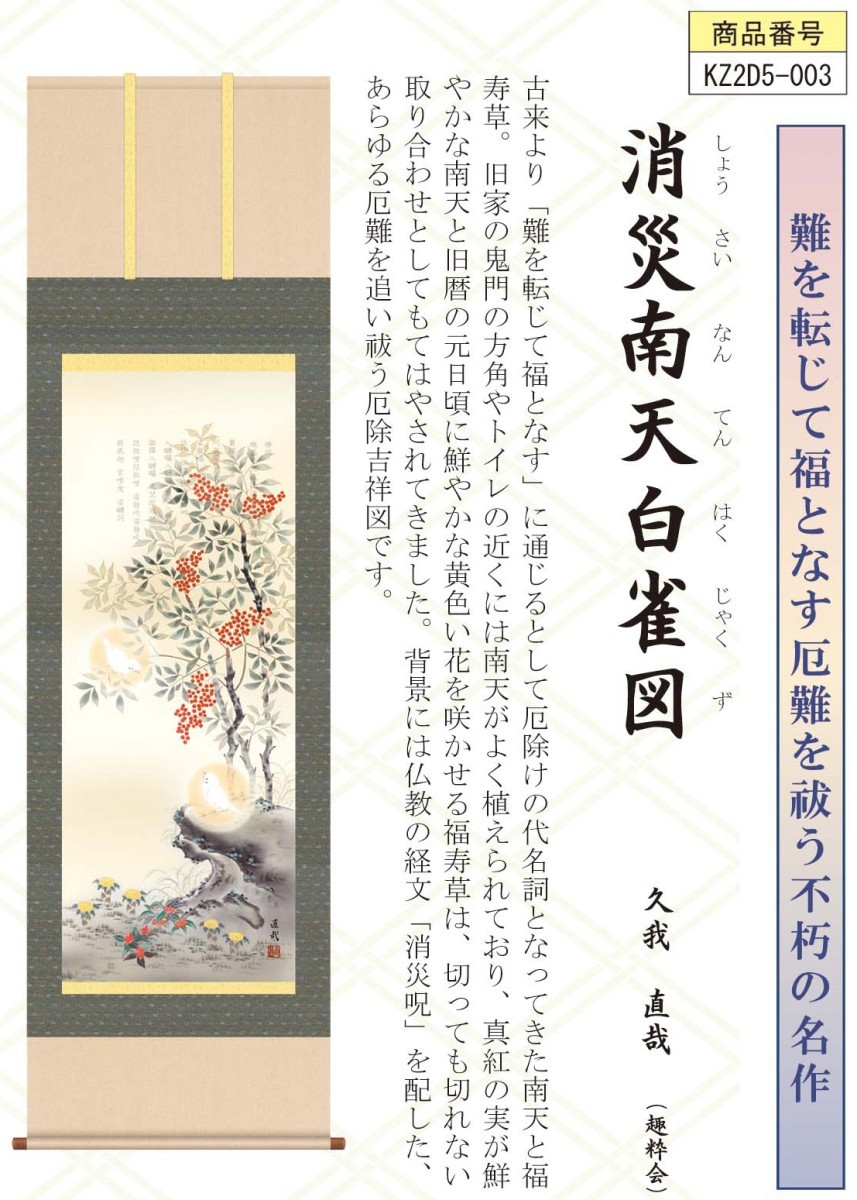 商品番号
KZ2D5-003
難を転じて福となす厄難を祓う不朽の名作
しょう さい なん てん はく じゃく ず
消災南天白雀図
久我 直哉 (趣粋会)
古来より「難を転じて福となす」に通じるとして厄除けの代名詞となってきた南天と福
寿草。旧家の鬼門の方角やトイレの近くには南天がよく植えられており、真紅の実が鮮
やかな南天と旧暦の元日頃に鮮やかな黄色い花を咲かせる福寿草は、切っても切れない
取り合わせとしてもてはやされてきました。背景には仏教の経文「消災呪」を配した、
あらゆる厄難を追い祓う厄除吉祥図です。
直哉